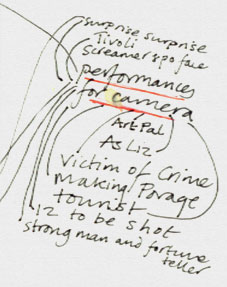 surprise surprise
Tivoli
Screamers po face
performances
for camera
ArtPal
As Liz
Victim of Crime
Making Porage
tourist
12 to be shot
strong man and fortune
teller